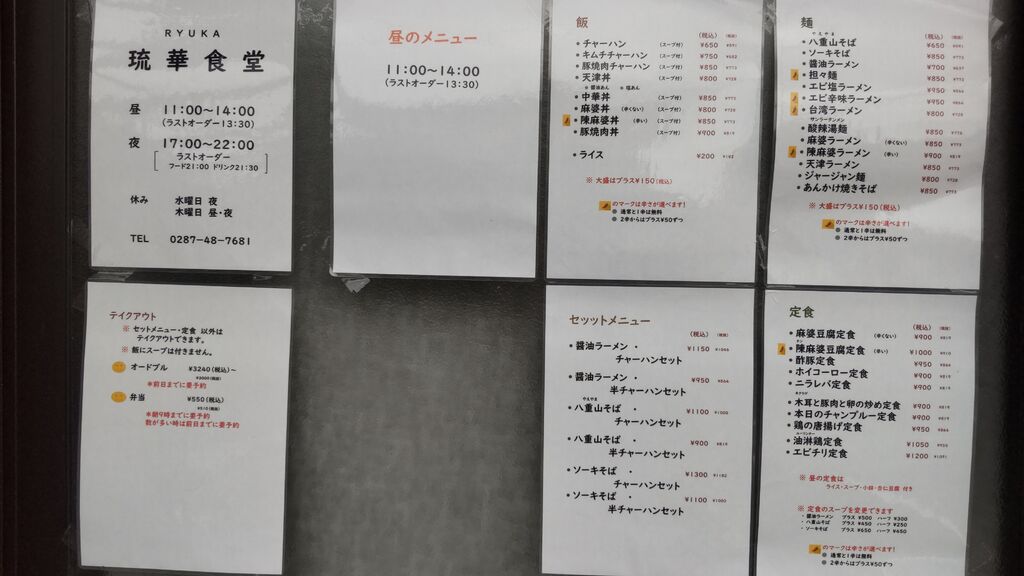 RYUKA
琉華食堂
昼 11:00～14:00
(ラストオーダー13:30)
夜 17:00～22:00
ラストオーダー
フード21:00 ドリンク21:30
休み 水曜日 夜
木曜日 昼・夜
TEL 0287-48-7681
昼のメニュー
11:00～14:00
(ラストオーダー13:30)
飯
(税込)
・チャーハン (スープ付) ¥650
・キムチチャーハン (スープ付) ¥750
・豚焼肉チャーハン (スープ付) ¥850 ¥773
・天津丼 (スープ付) ¥800 ¥728
・中華丼 (スープ付) ¥850 ¥773
・麻婆丼 (辛くない) (スープ付) ¥800 ¥728
・陳麻婆丼 (辛い) (スープ付) ¥850 ¥773
・豚焼肉丼 (スープ付) ¥900 ¥819
・ライス ¥200 ¥182
※ 大盛はプラス¥150(税込)
のマークは辛さが選べます!
● 通常と1辛は無料
● 2辛からはプラス¥50ずつ
麺
(税込)
やえやま
・八重山そば ¥650
・ソーキそば ¥850
・醤油ラーメン ¥700
・担々麺 ¥850
・エビ塩ラーメン ¥950
・エビ辛味ラーメン ¥950 ¥864
・台湾ラーメン ¥800 ¥728
サンラータンメン
・酸辣湯麺 ¥850 ¥773
・麻婆ラーメン (辛くない) ¥850 ¥773
・陳麻婆ラーメン (辛い) ¥900 ¥819
・天津ラーメン ¥850 ¥773
・ジャージャン麺 ¥800 ¥728
・あんかけ焼きそば ¥850 ¥773
※ 大盛はプラス¥150(税込)
のマークは辛さが選べます!
● 通常と1辛は無料
● 2辛からはプラス¥50ずつ
テイクアウト
※ セットメニュー・定食 以外は
テイクアウトできます。
※ 飯にスープは付きません。
オードブル ¥3240(税込)～
*前日までに要予約
弁当 ¥550(税込)
*朝9時までに要予約
数が多い時は前日までに要予約
セッットメニュー
(税込)
・醤油ラーメン ・ ¥1150 ¥1046
チャーハンセット
・醤油ラーメン ・ ¥950 ¥864
半チャーハンセット
やえやま
・八重山そば ・ ¥1100 ¥1000
チャーハンセット
・八重山そば ・ ¥900 ¥819
半チャーハンセット
・ソーキそば ・ ¥1300 ¥1182
チャーハンセット
・ソーキそば ・ ¥1100 ¥1000
半チャーハンセット
定食
(税込)
・麻婆豆腐定食 (辛くない) ¥900 ¥819
・陳麻婆豆腐定食 (辛い) ¥1000 ¥910
・酢豚定食 ¥950 ¥864
・ホイコーロー定食 ¥900 ¥819
・ニラレバ定食 ¥900 ¥819
・木耳と豚肉と卵の炒め定食 ¥900 ¥819
・本日のチャンプルー定食 ¥900 ¥819
・鶏の唐揚げ定食 ¥950 ¥864
・油淋鶏定食 ¥1050
・エビチリ定食 ¥1200 ¥1091
※ 昼の定食は
ライス・スープ・小鉢・杏仁豆腐 付き
※ 定食のスープを変更できます
・醤油ラーメン プラス ¥500 ハーフ ¥300
・八重山そば プラス ¥450 ハーフ ¥250
・ソーキそば プラス ¥650 ハーフ ¥450
のマークは辛さが選べます!
● 通常と1辛は無料
● 2辛からはプラス¥50ずつ